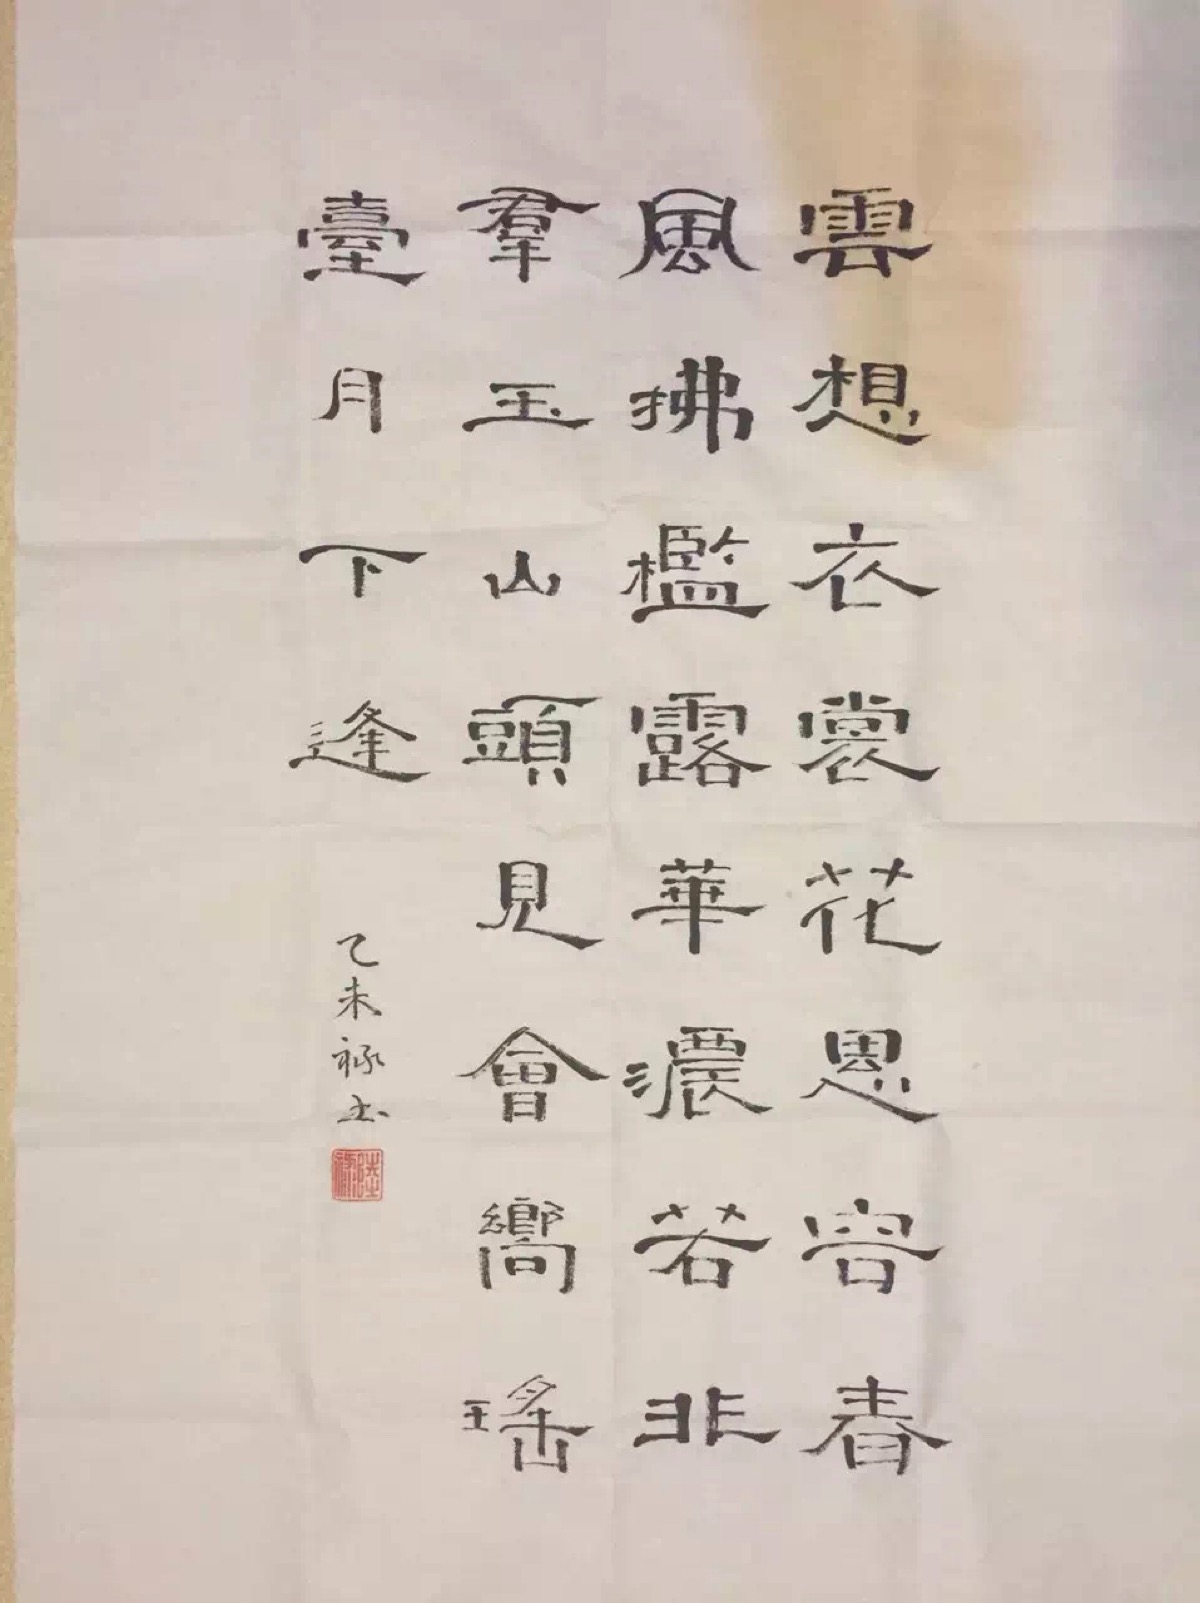 雲想衣裳花思容春
風拂檻露華濃若非
羣玉山頭見會嚮瑤
臺月下逢
乙未禄书
陸禄